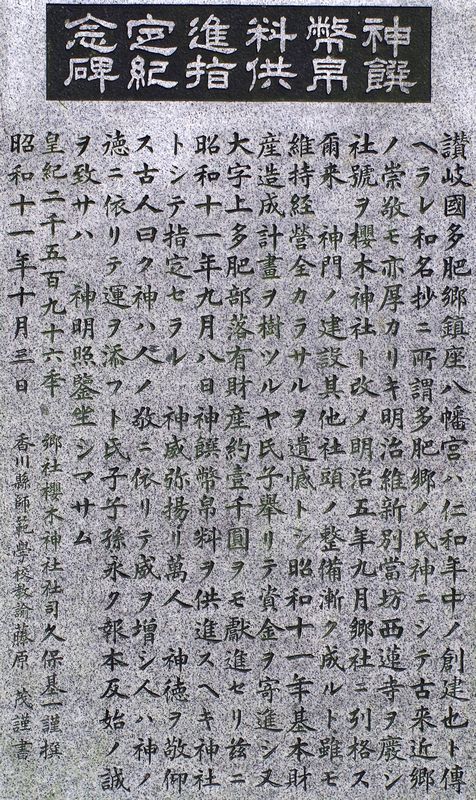 神饌
幣帛
料供
進指
定紀
念碑
讃岐國多肥郷鎮座八幡宮ハ仁和年中ノ創建也ト傳
ヘラレ和名抄ニ所謂多肥郷ノ氏神ニシテ古来近郷
ノ崇敬モ亦厚カリキ明治維新別當坊西蓮寺ヲ廢シ
社號ヲ櫻木神社ト改メ明治五年九月郷社ニ列格ス
爾来 神門ノ建設其他社頭ノ整備漸ク成ルト雖モ
維持経営全カラサルヲ遺憾トシ昭和十一年基本財
産造成計畫ヲ樹ツルヤ氏子舉リテ資金ヲ寄進シ又
大字上多肥部落有財産約壹千圓ヲモ獻進セリ茲ニ
昭和十一年九月八日 神饌幣帛料ヲ供進スヘキ神社
トシテ指定セラル 神威弥揚リ萬人 神徳ヲ敬仰
ス古人曰ク神ハ人ノ敬ニ依リテ威ヲ増シ人ハ神ノ
徳ニ依リテ運ヲ添フト氏子子孫永ク報本反始ノ誠
ヲ致サハ 神明照鑒坐シマサム
皇紀二千五百九十六年 郷社櫻木神社社司久保基一謹撰
昭和十一年十月三日 香川縣師範學校教諭藤原 茂謹書